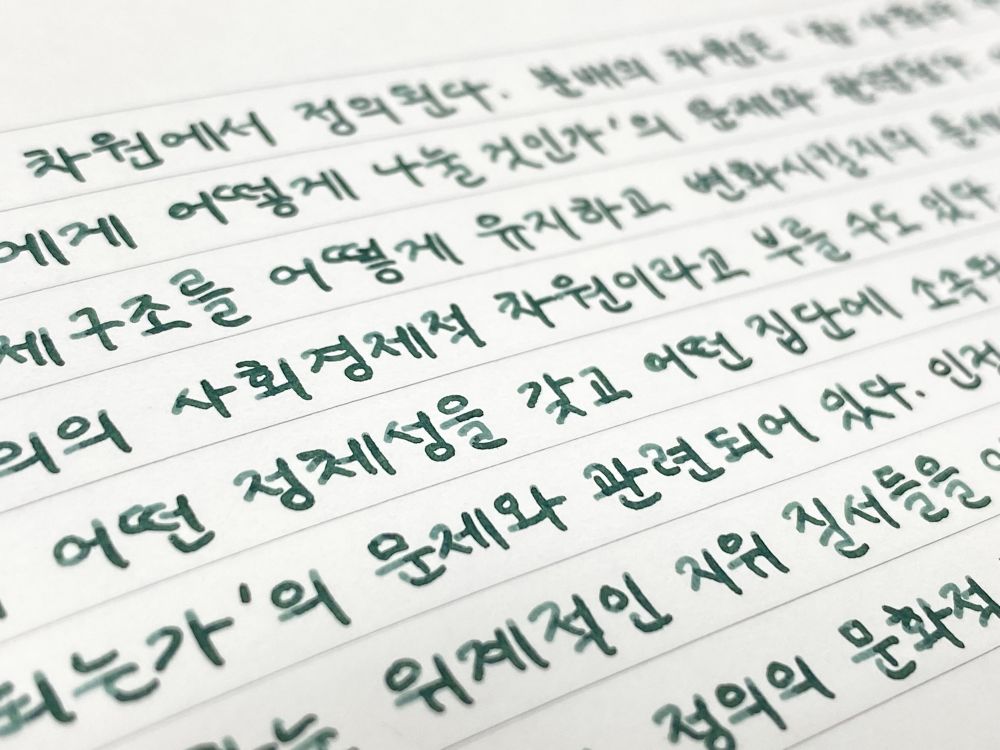 차원에서 정의된다. 분배의 차원은 '한 사회의
에게 어떻게 나눌 것인가'의 문제와 관련된다.
제구조를 어떻게 유지하고 변화시킬지의 문제
의의 사회경제적 차원이라고 부를 수도 있다
어떤 정체성을 갖고 어떤 집단에 소속되
되는가'의 문제와 관련되어 있다. 인정
는 위계적인 지위 질서들을
정의의 문화적